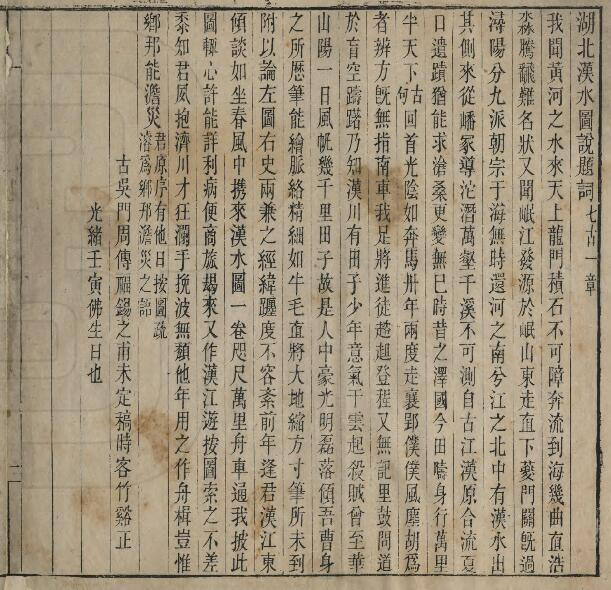 湖北漢水圖說題詞七古一章
我聞黃河之水來天上龍門積石不可障奔流到海幾曲直浩
淼騰飜難名狀又聞岷江發源於岷山東走直下夔門關旣過
潯陽分九派朝宗于海無時還河之南兮江之北中有漢水出
其側來從嶓冢導沱潛萬壑千溪不可測自古江漢原合流夏
口遺蹟猶能求滄桑更變無已時昔之澤國今田疇身行萬里
半天下古句回首光陰如奔馬卅年兩度走襄鄖僕僕風塵胡爲
者辨方旣無指南車我足將進徒趑趄登程又無記里鼓問道
於盲空躊躇乃知漢川有田子少年意氣干雲起殺賊曾至華
山陽一日風帆幾千里田子故是人中豪光明磊落傾吾曹身
之所歷筆能繪脈絡精細如牛毛直將大地縮方寸筆所未到
附以論左圖右史兩兼之經緯躔度不容紊前年逢君漢江東
傾談如坐春風中携來漢水圖一卷咫尺萬里舟車通我披此
圖輒心許能詳利病便商旅朅來又作漢江遊按圖索之不差
黍知君夙抱濟川才狂瀾手挽波無頹他年用之作舟楫豈惟
鄉邦能澹災君原序有他日按圖疏濬爲鄉邦澹災之語
古吳門周傳禠錫之甫未定稿時客竹谿正
光緒壬寅佛生日也
二